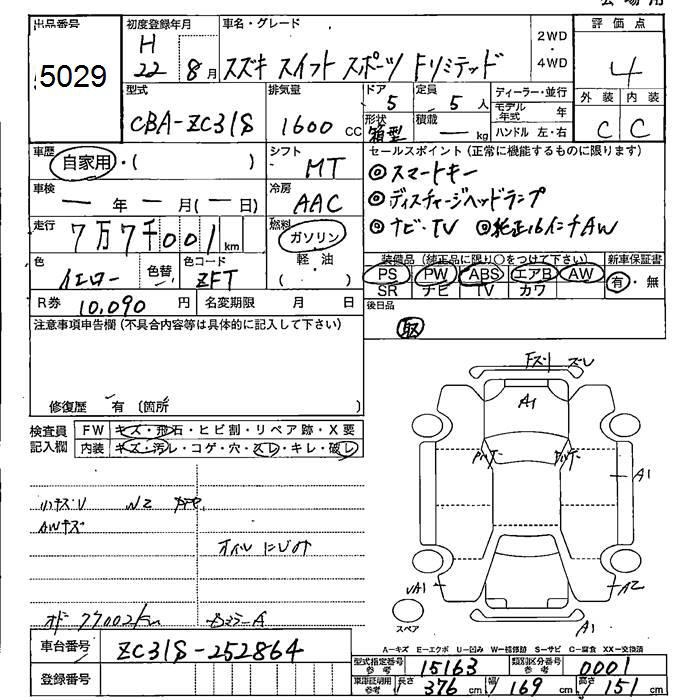 出品番号
5029
初度登録年月
H
22 8月
車名・グレード
スズキ スイフト スポーツ Fリミテッド
2WD
・
4WD
評価点
4
外装 内装
C C
型式
CBA-ZC31S
排気量
1600 cc
ドア
5
定員
5 人
形状
箱型
積載
— kg
ディーラー・並行
モデル年式 年
ハンドル 左・右
車歴
自家用・( )
シフト
MT
セールスポイント (正常に機能するものに限ります)
◎スマートキー
◎ディスチャージヘッドランプ
◎ナビ・TV ◎純正16インチAW
車検
— 年 — 月(— 日)
冷房
AAC
走行
7万7千001km
燃料
ガソリン
軽油
( )
色
イエロー
色替
色コード
ZFT
装備品 (純正品に限り○をつけて下さい)
PS PW ABS エアB AW
SR ナビ TV カワ
新車保証書
有・無
R券 10,090 円
名変期限 月 日
後日品
取
注意事項申告欄 (不具合内容等は具体的に記入して下さい)
修復歴 有 〔箇所 〕
検査員
記入欄
FW キズ・飛石・ヒビ割・リペア跡・X要
内装 キズ・汚レ・コゲ・穴・スレ・キレ・破レ
小キズU
AWキズ
オイルにじみ
オドー77002km
Fスリ ズレ
A1
A1
UA1
A2
A1
スペア
A−キズ E−エクボ U−凹み W−補修跡 S−サビ C−腐食 XX−交換済
車台番号
ZC31S-252864
登録番号
型式指定番号
参考
15163
類別区分番号
参考
0001
車庫証明用
参考
長さ 376 cm 幅 169 cm 高さ 151 cm